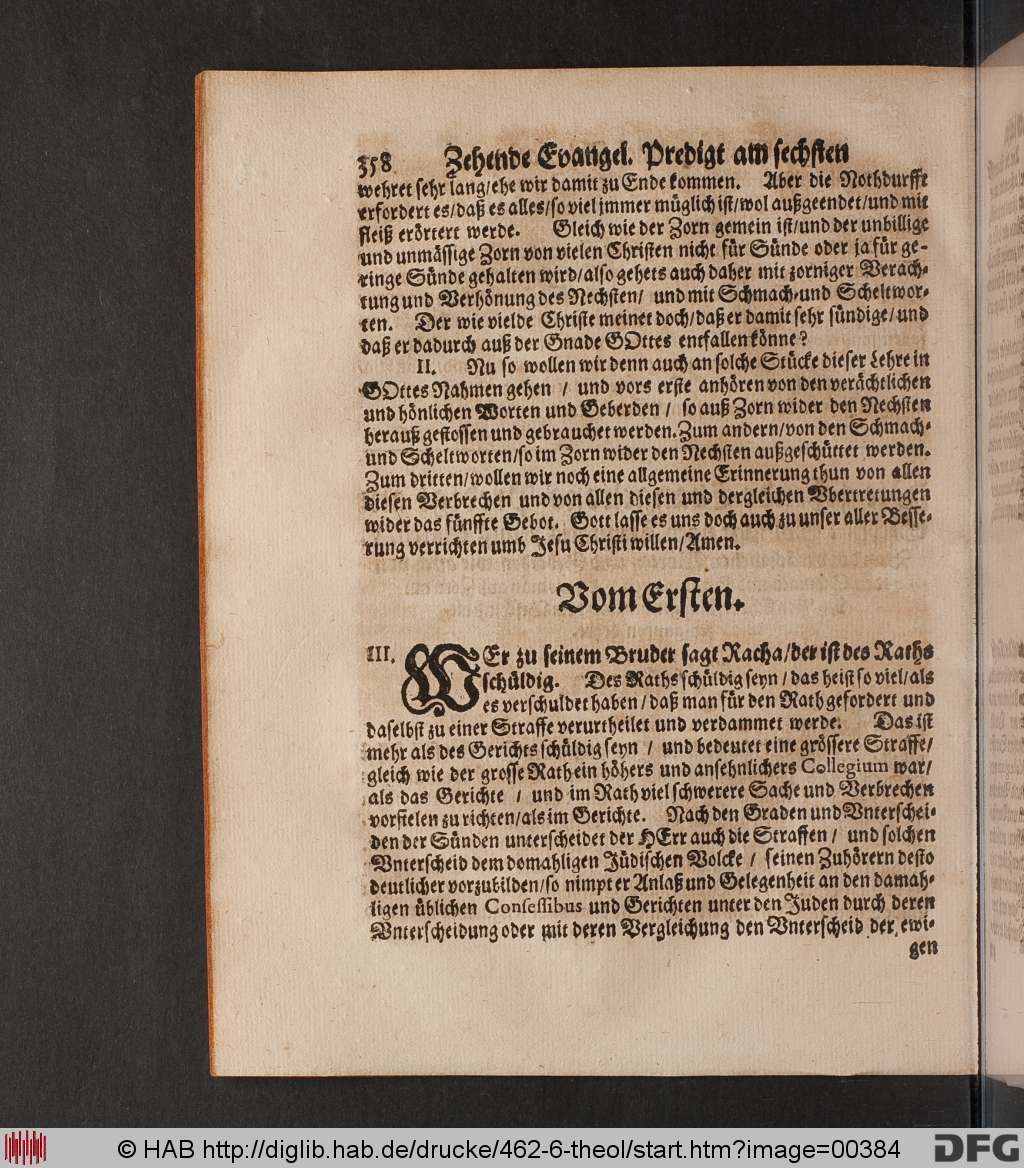 358 Zehende Evangel. Predigt am sechsten
wehret sehr lang/ehe wir damit zu Ende kommen. Aber die Nothdurfft
erfordert es/daß es alles/so viel jmmer müglich ist/wol außgeendet/und mit
fleiß erörtert werde. Gleich wie der Zorn gemein ist/und der unbillige
und unmässige Zorn von vielen Christen nicht für Sünde oder ja für ge-
ringe Sünde gehalten wird/also gehets auch daher mit zorniger Verach-
tung und Verhönung des Nechsten/ und mit Schmach-und Scheltwor-
ten. Der wie vielde Christe meinet doch/daß er damit sehr sündige/und
daß er dadurch auß der Gnade GOttes entfallen könne?
II. Nu so wollen wir denn auch an solche Stücke dieser Lehre in
GOttes Nahmen gehen / und vors erste anhören von den verächtlichen
und hönlichen Worten und Geberden / so auß Zorn wider den Nechsten
herauß gestossen und gebrauchet werden. Zum andern/von den Schmach-
und Scheltworten/so im Zorn wider den Nechsten außgeschüttet werden.
Zum dritten/wollen wir noch eine allgemeine Erinnerung thun von allen
diesen Verbrechen und von allen diesen und dergleichen Vbertretungen
wider das fünffte Gebot. Gott lasse es uns doch auch zu unser aller Besse-
rung verrichten umb Jesu Christi willen/Amen.
Vom Ersten.
III. WEr zu seinem Bruder sagt Racha/der ist des Raths
schüldig. Des Raths schüldig seyn / das heist so viel/als
es verschuldet haben / daß man für den Rath gefordert und
daselbst zu einer Straffe verurtheilet und verdammet werde. Das ist
mehr als des Gerichts schüldig seyn / und bedeutet eine grössere Straffe/
gleich wie der grosse Rath ein höhers und ansehnlichers Collegium war/
als das Gerichte / und im Rath viel schwerere Sache und Verbrechen
vorfielen zu richten/als im Gerichte. Nach den Graden und Vnterschei-
den der Sünden unterscheidet der HErr auch die Straffen / und solchen
Vnterscheid dem domahligen Jüdischen Volcke / seinen Zuhörern desto
deutlicher vorzubilden/so nimpt er Anlaß und Gelegenheit an den damah-
ligen üblichen Consessibus und Gerichten unter den Juden durch deren
Vnterscheidung oder mit deren Vergleichung den Vnterscheid der ewi-
gen
© HAB http://diglib.hab.de/drucke/462-6-theol/start.htm?image=00384
DFG